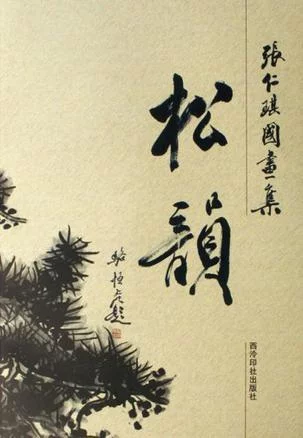 張仁琪國畫集
松韻
駱恒光題
西泠印社出版社